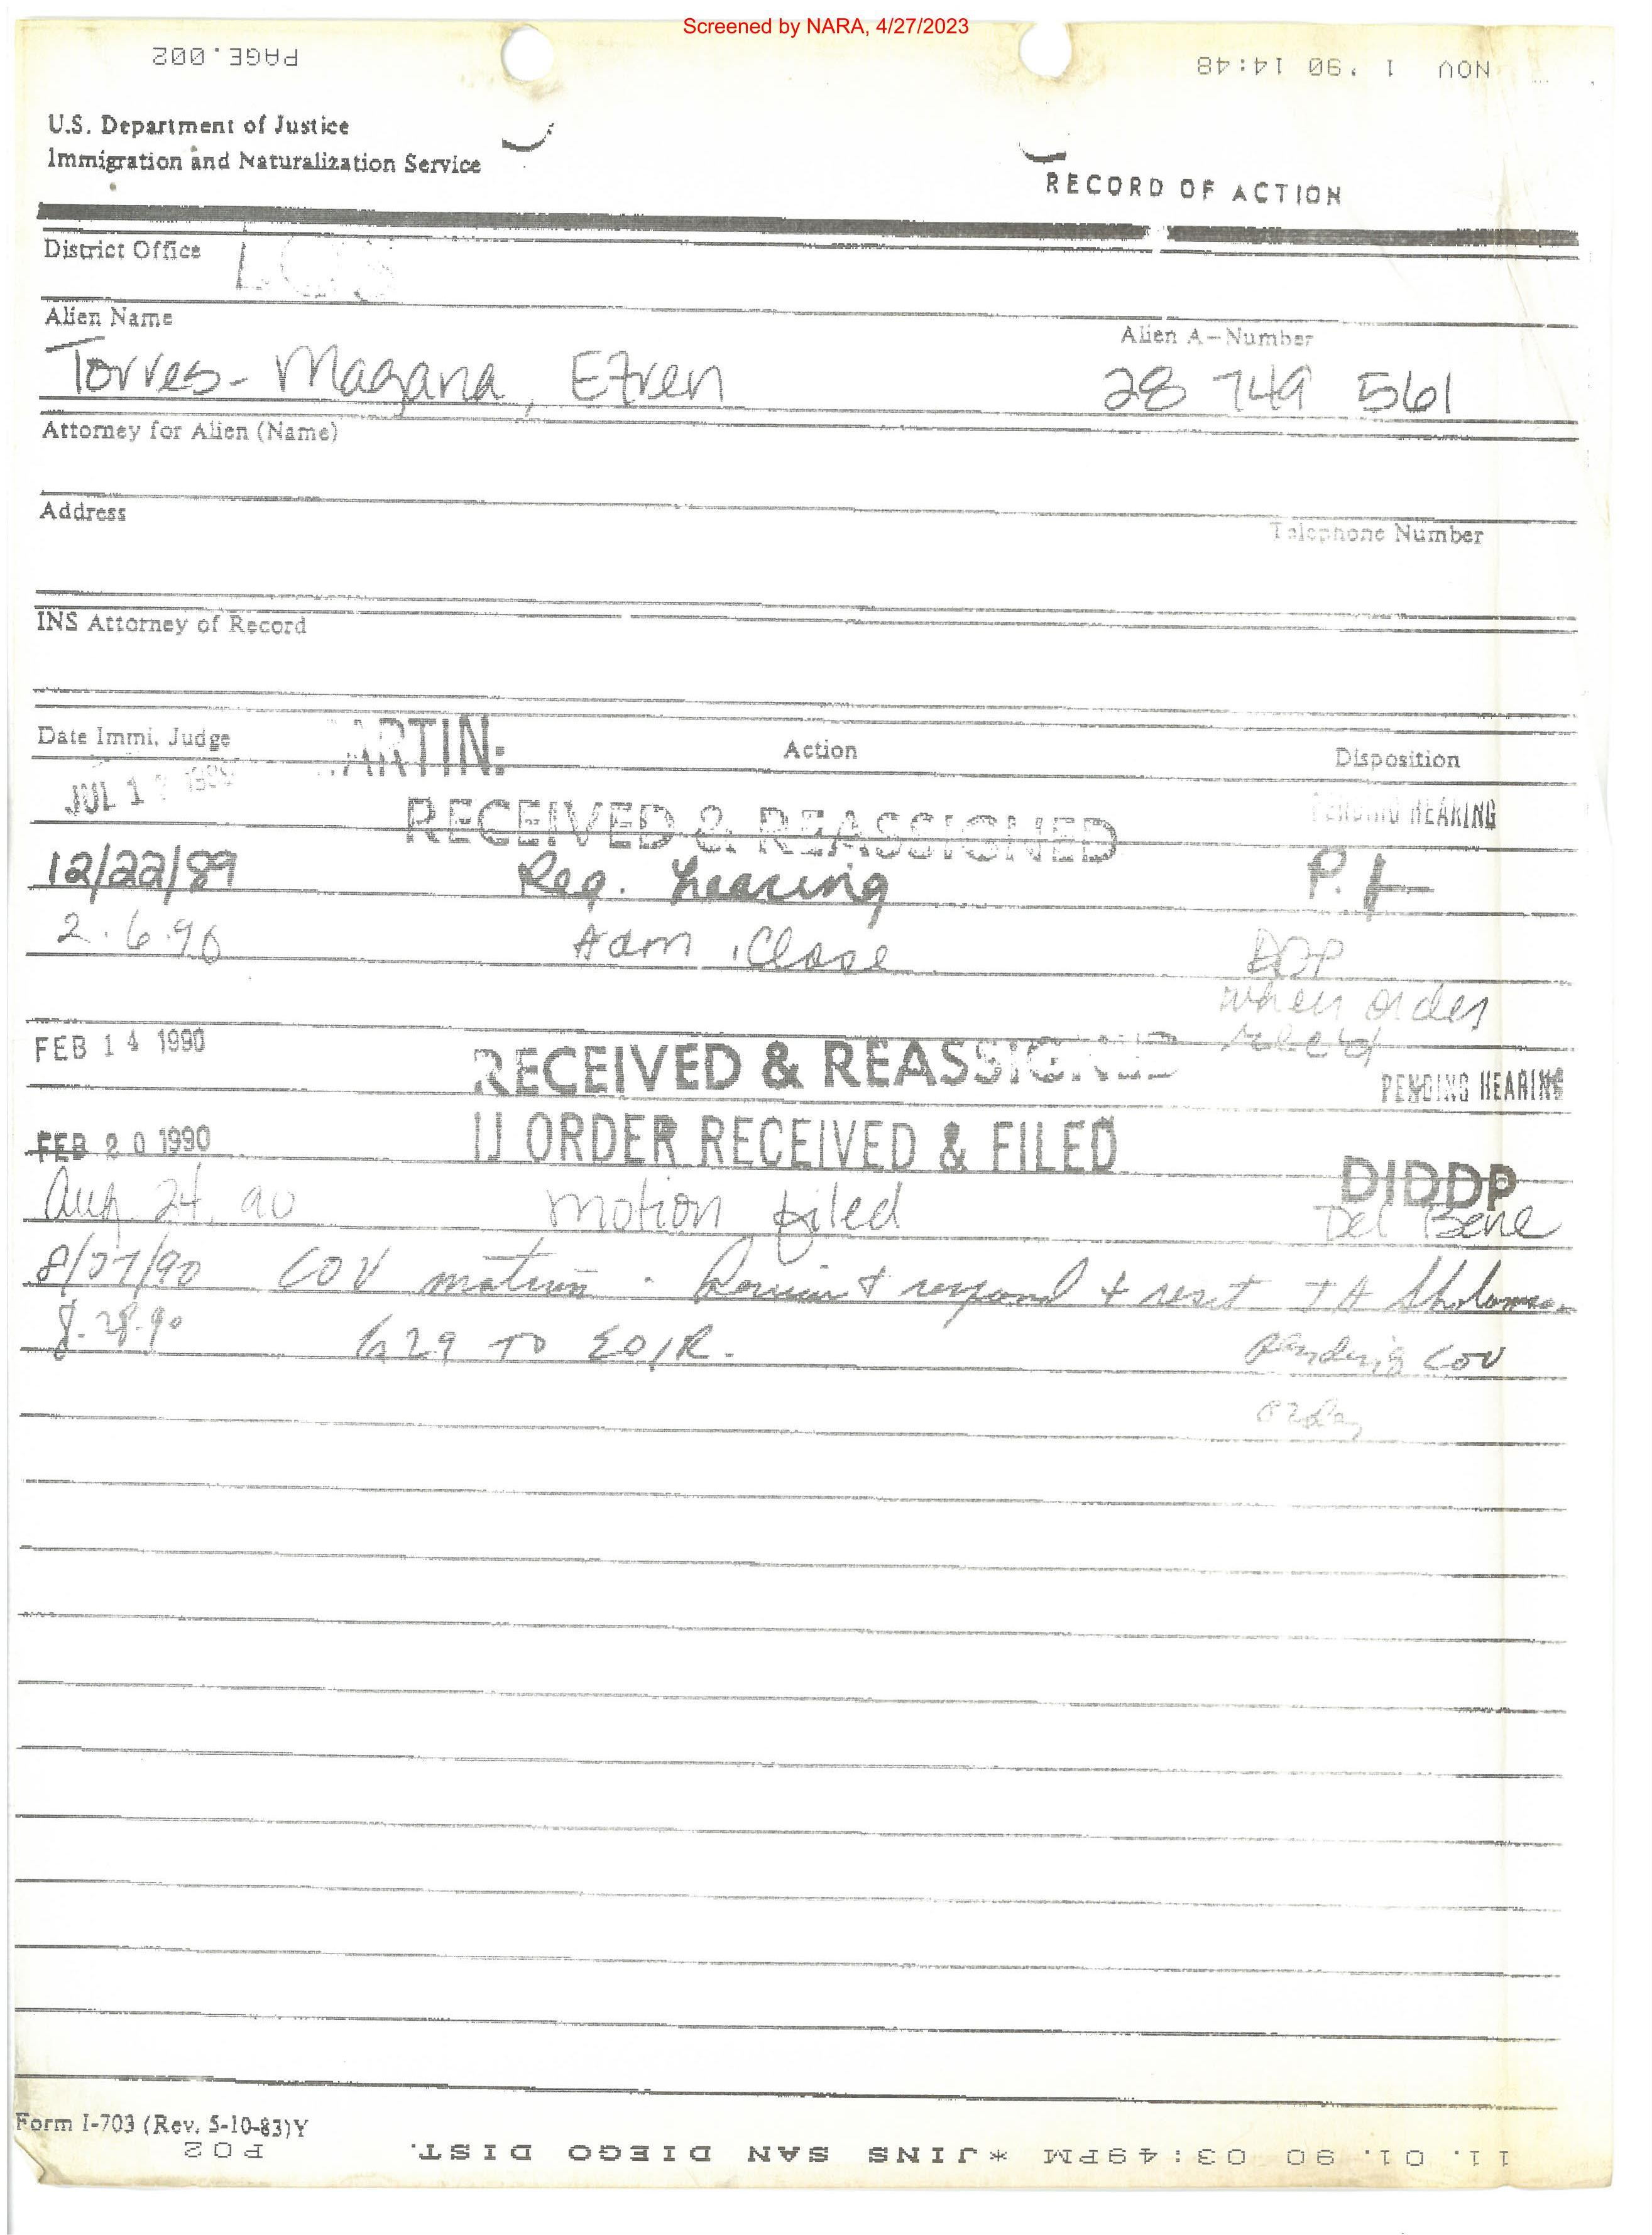 Screened by NARA, 4/27/2023
PAGE.002
NOV 1 '90 14:48
U.S. Department of Justice
Immigration and Naturalization Service
RECORD OF ACTION
District Office LOS
Alien Name
Alien A-Number
Torres-Magana, Efren 28 749 561
Attorney for Alien (Name)
Address
Telephone Number
INS Attorney of Record
Date Immi. Judge ARTIN: Action Disposition
JUL 1 RECEIVED & REASSIGNED PENDING HEARING
12/22/89 Req. hearing P.H
2.6.90 Adm. Close DDP
when order
rec'd
FEB 14 1990 RECEIVED & REASSIGNED PENDING HEARING
FEB 20 1990 IJ ORDER RECEIVED & FILED DIDDP
Aug. 24, 90 motion filed Del Bene
8/27/90 COV motion - Review & respond & reset TA
8-28-90 G29 TO EOIR. Pending COV
order
Form I-703 (Rev. 5-10-83)Y
11. 01. 90 03:49PM *INS SAN DIEGO DIST. P02